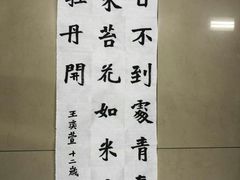 日不到處青春
來苔花如米小
牡丹開
王奕萱 十二歲